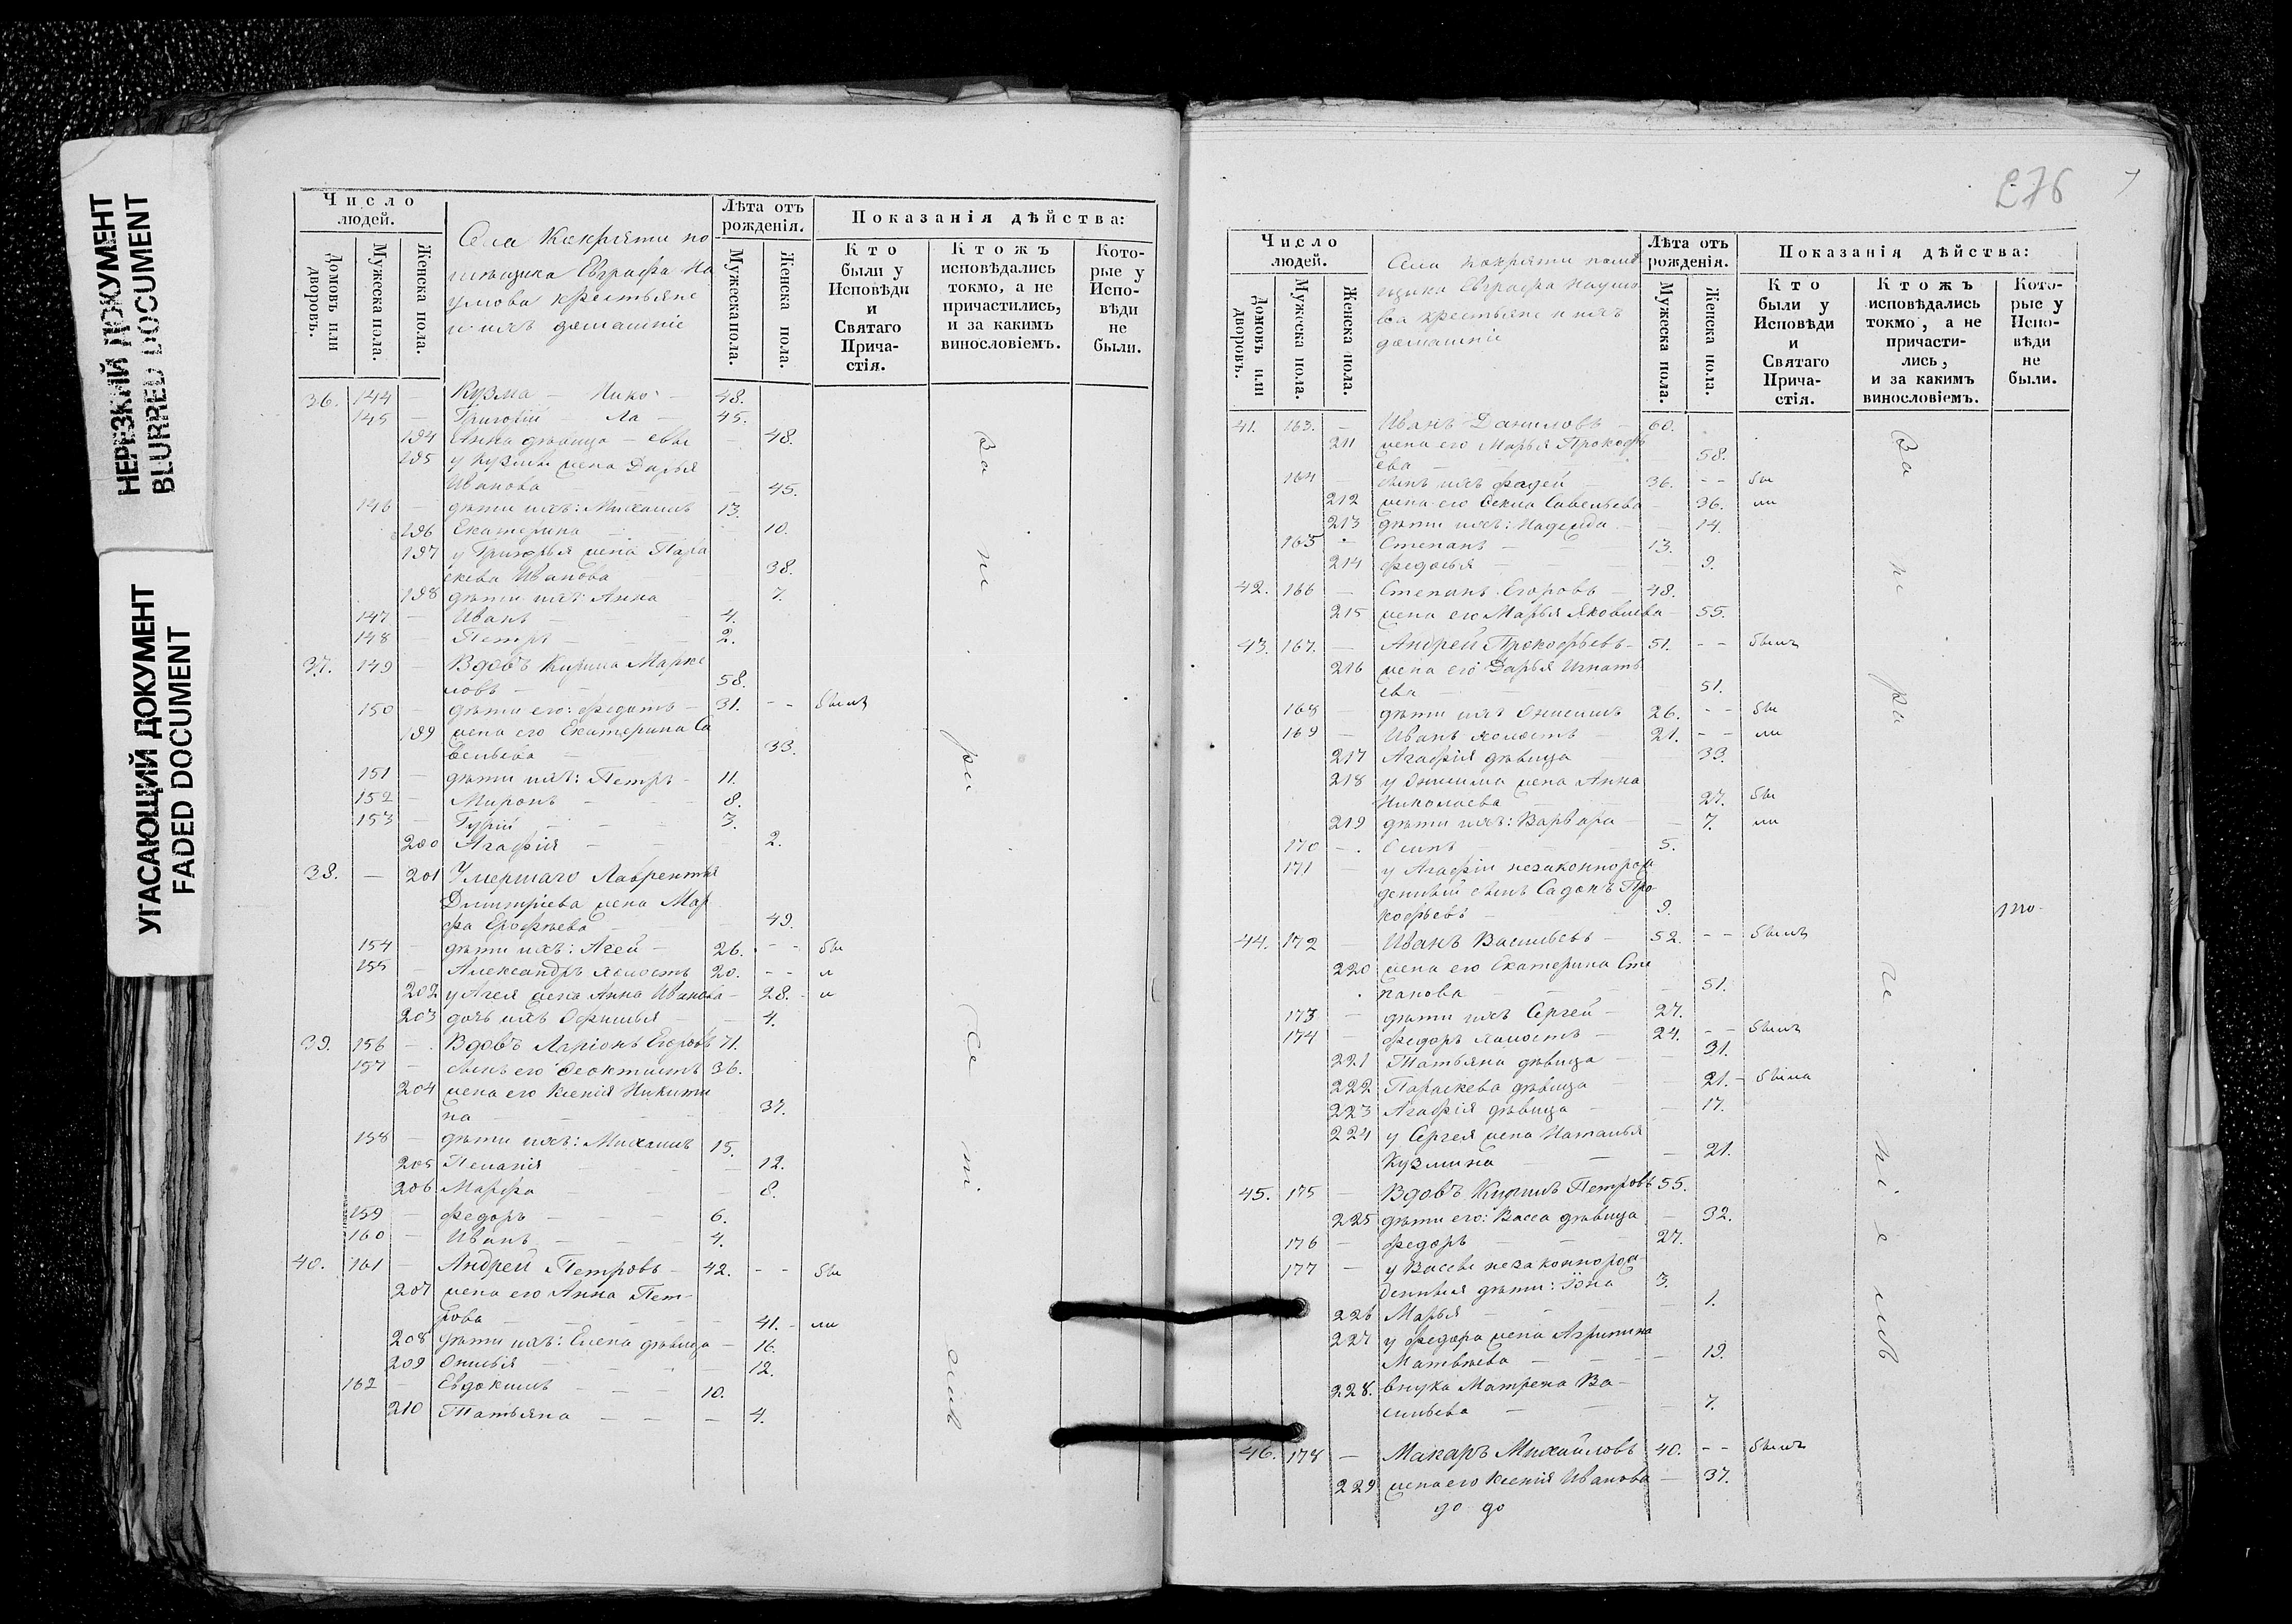 НЕРЕЗКИЙ ДОКУМЕНТ
BLURRED DOCUMENT
УГАСАЮЩИЙ ДОКУМЕНТ
FADED DOCUMENT
Число людей.
Домовъ или дворовъ.
Мужеска пола.
Женска пола.
Села Кокряти по
мѣщика Евграфа На
умова крестьяне
и ихъ домашніе
Лѣта отъ рожденія.
Мужеска пола.
Женска пола.
Показанія дѣйства:
Кто были у Исповѣди и Святаго Прича-стія.
Ктожъ исповѣдались токмо, а не причастились, и за какимъ винословіемъ.
Кото-рые у Испо-вѣди не были.
36. 144 — Кузма — Нико — 48.
145 — Григорій Ла — 45.
194 Анна дѣвица — евы — 48.
195 у Кузмы жена Дарья
Иванова — 45.
146 — дѣти ихъ: Михаилъ 13.
196 Екатерина — 10.
197 у Григорья жена Пара
скева Иванова — 38.
198 дѣти ихъ: Анна — 7.
147 — Иванъ — 4.
148 — Петръ — 2.
37. 149 — Вдовъ Кирила Марке
ловъ — 58.
150 — дѣти его: Федотъ — 31. - - былъ
199 жена его Екатерина Са
вельева — 33.
151 — дѣти ихъ: Петръ — 11.
152 — Миронъ — 8.
153 — Гурій — 3.
200 Агафія — 2.
38. — 201 Умершаго Лаврентья
Дмитріева жена Мар
фа Ерофѣева — 49.
154 — дѣти ихъ: Агей — 26. - - бы
155 — Александръ холостъ 20. - - л
202 у Агея жена Анна Иванова — 28. - и
203 дочь ихъ Офимья — 4.
39. 156 — Вдовъ Ларіонъ Егоровъ 71.
157 — сынъ его Феоктистъ 36.
204 жена его Ксенія Никити
на — 37.
158 — дѣти ихъ: Михаилъ 15.
205 Пелагія — 12.
206 Марфа — 8.
159 — Федоръ — 6.
160 — Иванъ — 4.
40. 161 — Андрей Петровъ — 42. - - бы
207 жена его Анна Пет-
рова — 41. - ли
208 дѣти ихъ: Елена дѣвица — 16.
209 — 12.
162 — Евдокимъ — 10.
210 Татьяна — 4.
За не ра
276
Число людей.
Домовъ или дворовъ.
Мужеска пола.
Женска пола.
Села Кокряти помѣ
щика Евграфа Наумо
ва крестьяне и ихъ
домашніе
Лѣта отъ рожденія.
Мужеска пола.
Женска пола.
Показанія дѣйства:
Кто были у Исповѣди и Святаго Прича-стія.
Ктожъ исповѣдались токмо, а не причасти-лись, и за какимъ винословіемъ.
Кото-рые у Испо-вѣди не были.
41. 163. — Иванъ Даниловъ — 60.
211 жена его Марья Прокофь
ева — 58.
164 — сынъ ихъ Фадей — 36. - - бы
212 жена его Секла Савельева — 36. ли
213 дѣти ихъ: Надежда — 14.
165 — Степанъ — 13.
214 Федосья — 9.
42. 166 — Степанъ Егоровъ — 48.
215 жена его Марья Яковлева — 55.
43. 167. — Андрей Прокофьевъ — 51. - - былъ
216 жена его Дарья Игнать
ева — 51.
168 дѣти ихъ Онисимъ 26. - - бы
169 — Иванъ холостъ — 21. - - ли
217 Агафія дѣвица — 33.
218 у Онисима жена Анна
Николаева — 27. бы
219 дѣти ихъ: Варвара — 7. ли
170 — Осипъ — 5.
171 — у Агафіи незаконнорож
денный сынъ Садокъ Про
кофьевъ — 9.
44. 172 — Иванъ Васильевъ — 52. - - былъ
220 жена его Екатерина Сте
панова — 51.
173 — дѣти ихъ Сергей — 27.
174 — Федоръ холостъ — 24. - - былъ
221 Татьяна дѣвица — 31.
222 Параскева дѣвица — 21. - была
223 Агафія дѣвица — 17.
224 у Сергея жена Наталья
Кузмина — 21.
45. 175 — Вдовъ Кирилъ Петровъ 55.
225 дѣти его: Васса дѣвица — 32.
176 — Федоръ — 27.
177 — у Вассы незаконнорож-
денныя дѣти: Іона 3.
226 Марья — 1.
227 у Федора жена Агрипина
Матвѣева — 19.
228. внука Матрена Ва-
сильева — 7.
46. 178 — Макаръ Михайловъ 40. - - былъ
229 жена его Ксенія Иванова — 37.
За не ра